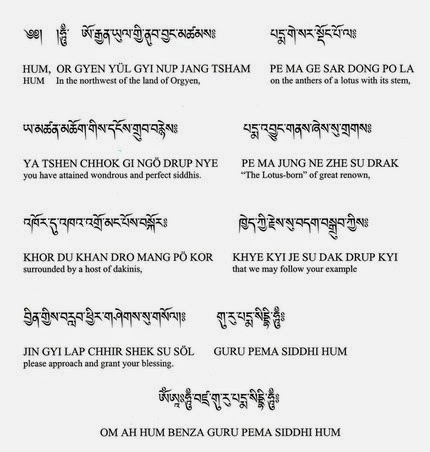 ༄༅། །ཧཱུྃ༔ ཨོ་རྒྱན་ཡུལ་གྱི་ནུབ་བྱང་མཚམས༔
HUM, OR GYEN YÜL GYI NUP JANG TSHAM
HUM In the northwest of the land of Orgyen,
པདྨ་གེ་སར་སྡོང་པོ་ལ༔
PE MA GE SAR DONG PO LA
on the anthers of a lotus with its stem,
ཡ་མཚན་མཆོག་གིས་དངོས་གྲུབ་བརྙེས༔
YA TSHEN CHHOK GI NGÖ DRUP NYE
you have attained wondrous and perfect siddhis.
པདྨ་འབྱུང་གནས་ཞེས་སུ་གྲགས༔
PE MA JUNG NE ZHE SU DRAK
“The Lotus-born” of great renown,
འཁོར་དུ་འཁའ་འགྲོ་མང་པོས་བསྐོར༔
KHOR DU KHAN DRO MANG PÖ KOR
surrounded by a host of dakinis,
ཁྱེད་ཀྱི་རྗེས་སུ་བདག་བསྒྲུབ་ཀྱིས༔
KHYE KYI JE SU DAK DRUP KYI
that we may follow your example
བྱིན་གྱིས་བརླབ་ཕྱིར་གཤེགས་སུ་གསོལ༔
JIN GYI LAP CHHIR SHEK SU SÖL
please approach and grant your blessing.
གུ་རུ་པདྨ་སིདྡྷི་ཧཱུྃ༔
GURU PEMA SIDDHI HUM
ༀ་ཨཱཿཧཱུྃ་བཛྲ་གུ་རུ་པདྨ་སིདྡྷི་ཧཱུྃ༔
OM AH HUM BENZA GURU PEMA SIDDHI HUM